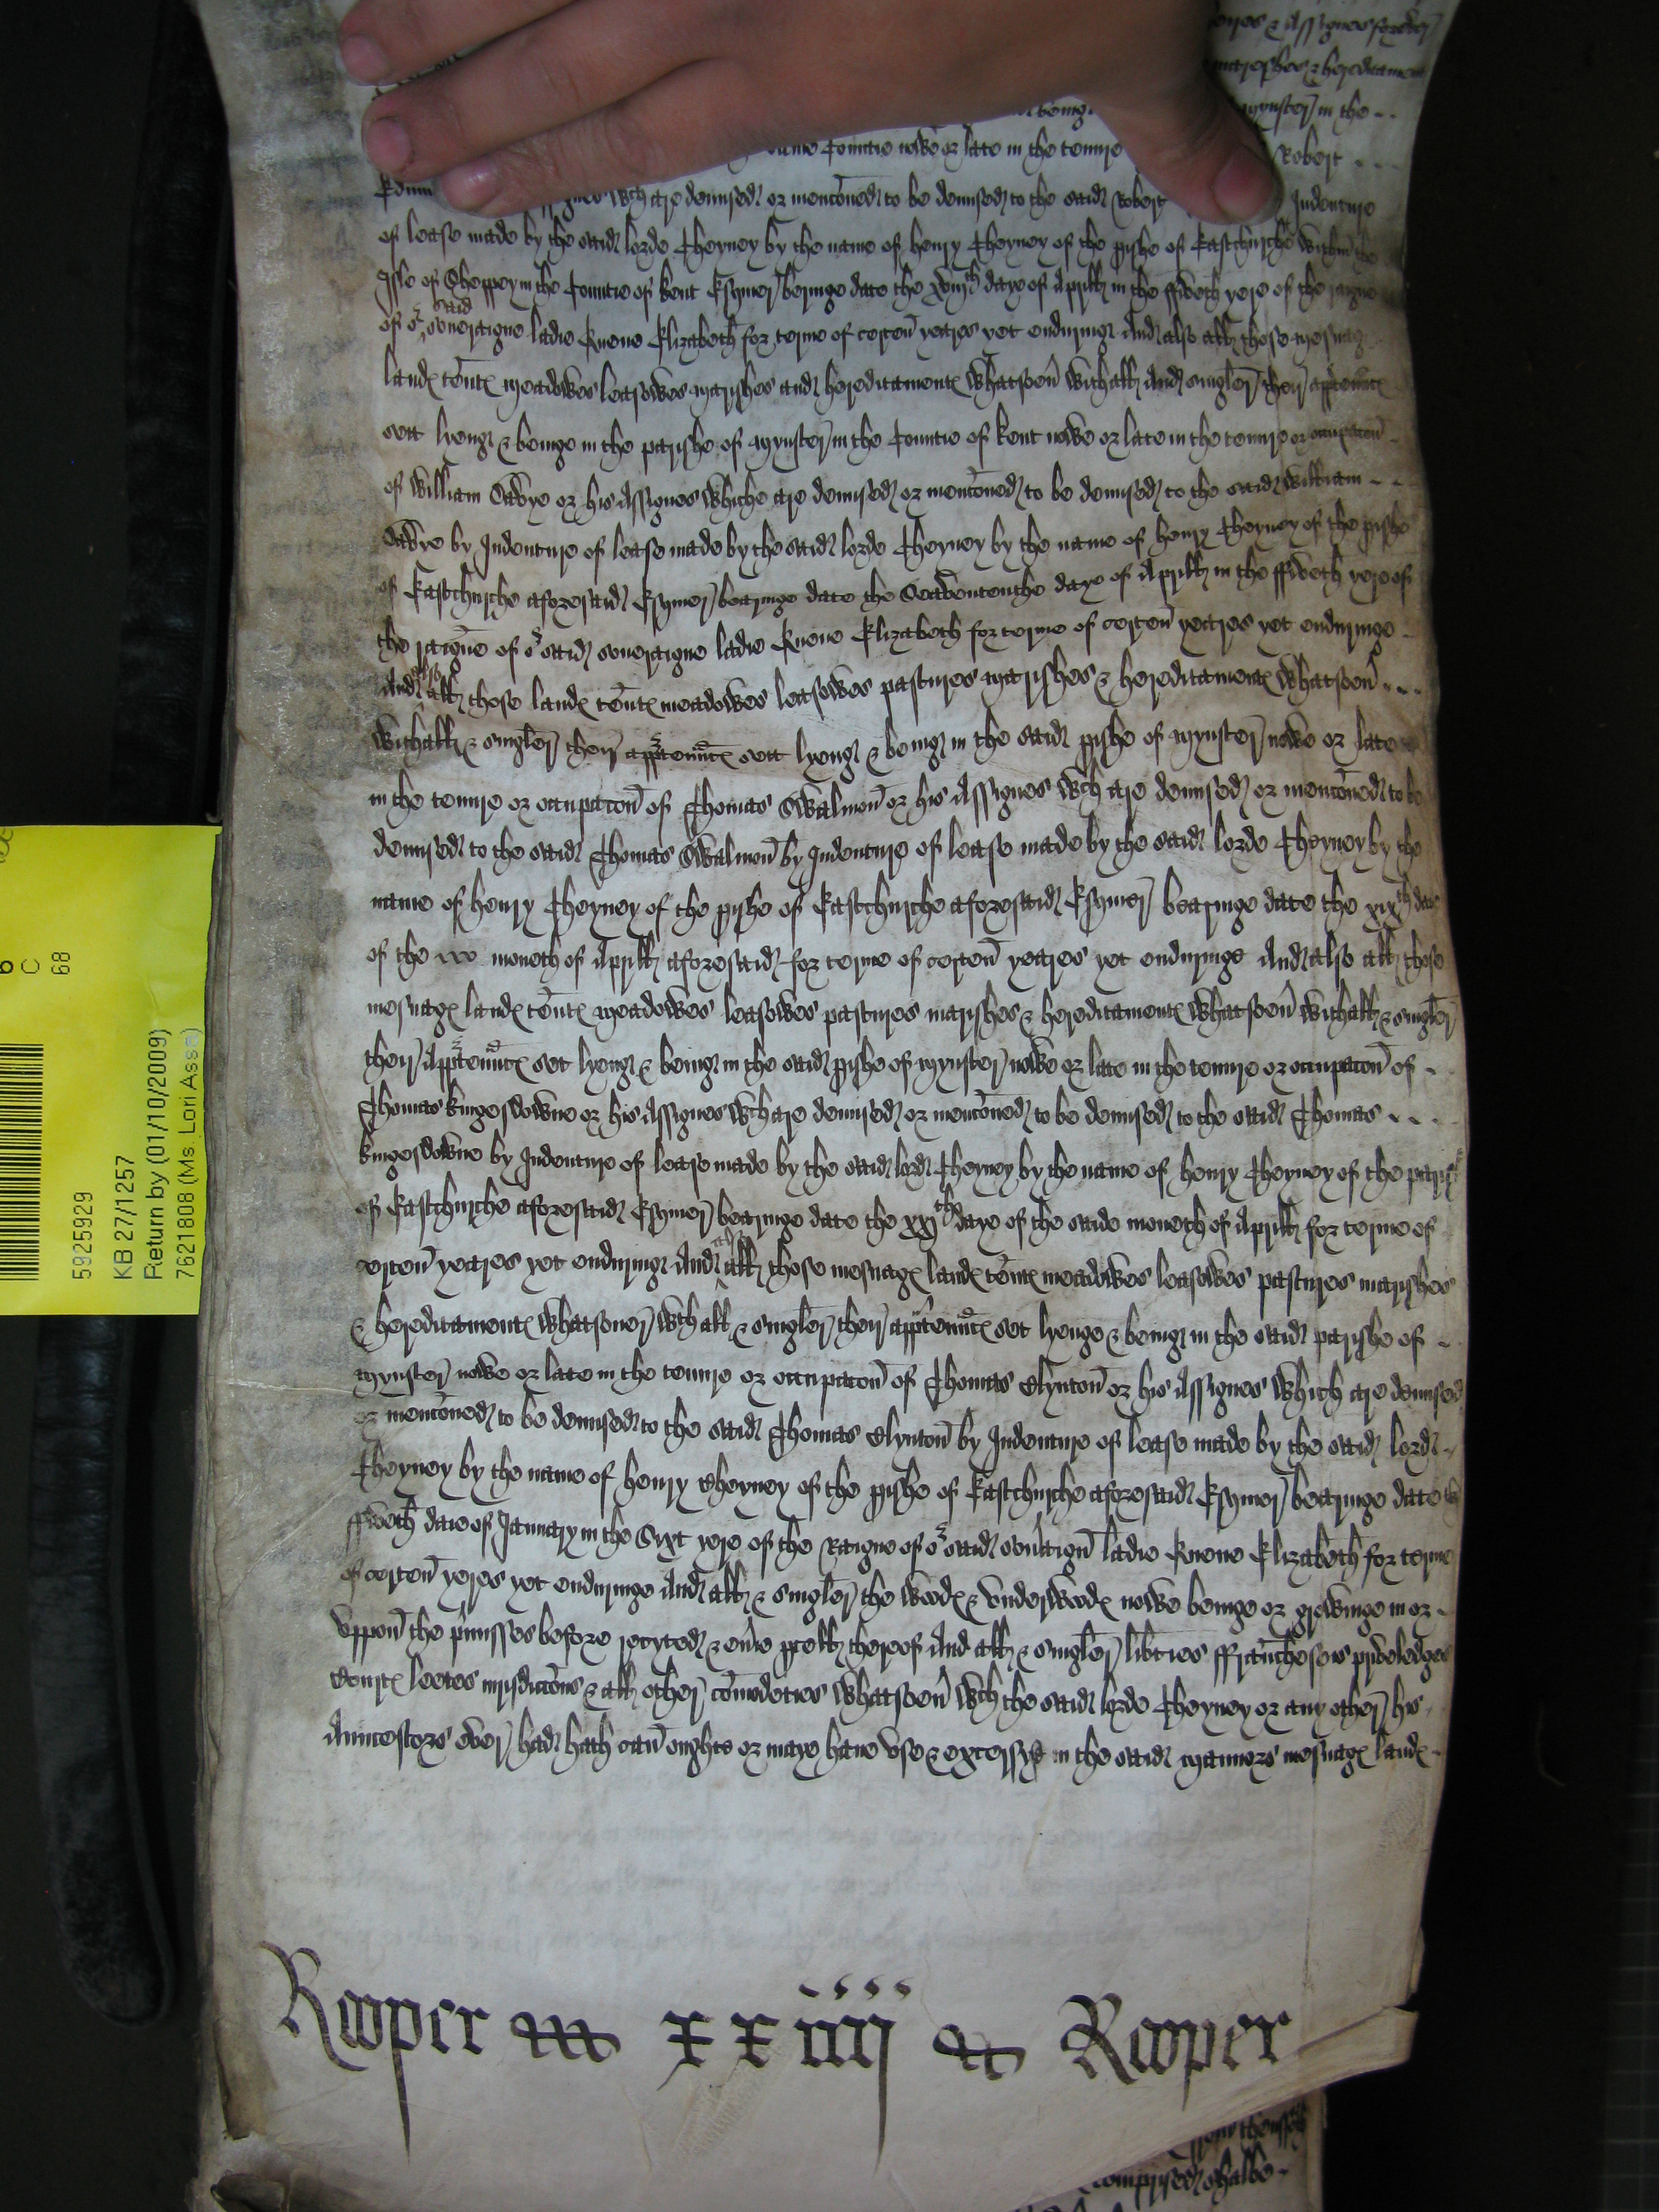 eires & Assignes forever
marishes & hereditament
mynster in the
same Countie nowe or late in the tenure Robert
assignes wch are demised or menconed to be demised to the said Robert Indenture
of lease made by the said lorde Cheyney by the name of henry Cheyney of the pishe of Eastchurche within the
Isle of Sheppey in the Countie of Kent Esquier beringe date the daye of Aprill in the ffiveth yere of the raigne
of or said soueraigne ladie Quene Elizabeth for terme of certen yeares yet enduring And also all those mesuag
land tent meadowes leasowes marishes and hereditament whatsoeu withall and singler their apptennc
sett lyeng & beinge in the parishe of mynster in the Countie of Kent nowe or late in the tenure or occupacon
of William Sawye or his Assignes whiche are demised or menconed to be demised to the said william
Sawye by Indenture of lease made by the said lorde Cheyney by the name of henry Cheyney of the pishe
of Eastchurche aforesaid Esquier bearinge date the Seavententhe daye of Aprill in the ffiveth yere of
the raigne of or said soueraigne ladie Quene Elizabeth for terme of certen yeares yet enduringe
And also all those land tent meadowes leasowes pastures marishes & hereditament whatsoeu
withall & singler their apptennc sett lyeng & being in the said pishe of mynster nowe or late
in the tenure or occupacon of Thomas Swalmon or his Assignes wch are demised or menconed to be
demised to the said Thomas Swalmon by Indenture of lease made by the said lorde Cheyney by the
name of henry Cheyney of the pishe of Eastchurche aforesaid Esquier bearinge date the xixth daie
of the moneth of Aprill aforesaid for terme of certen yeares yet enduringe And also all those
mesuag land tent meadowes leasowes pastures marishes & hereditament whatsoeu withall & singler
their Apptennc set lyeng & being in the said pishe of mynster nowe or late in the tenure or occupacon of
Thomas kingesdowne or his Assignes wch are demised or menconed to be demised to the said Thomas
kingesdowne by Indenture of lease made by the said lord Cheyney by the name of henry Cheyney of the parish
of Eastchurche aforesaid Esquier bearinge date the xxjth daye of the saide moneth of Aprill for terme of
certen yeares yet enduring And also all those mesuag land tent meadowes leasowes pastures marishes
& hereditament whatsoeuer wth all & singler their apptennc set lyenge & being in the said parishe of
mynster nowe or late in the tenure or occupacon of Thomas Clynton or his Assignes which are demised
or menconed to be demised to the said Thomas Clynton by Indenture of lease made by the said lord
Cheyney by the name of henry Cheyney of the pishe of Eastchurche aforesaid Esquier bearinge date the
ffiveth daie of January in the Sixt yere of the Raigne of or said souaign ladie Quene Elizabeth for terme
of certen yeres yet enduringe And all & singler the wood & underwood nowe beinge or growinge in or
uppon the pmisses before recyted & euie pcell thereof And all & singler libties ffrauncheses priveledges
Court leetes jurisduccons & all other comodeties whatsoeu wch the said lorde Cheyney or any other his
Auncestors ever had hath can oughte or maye have use & excersyse in the said mannors mesuag land
Rooper xxiiij Rooper
compiled shalbe
6
C
68
5925929
KB 27/1257
Return by (01/10/2009)
7621808 (Ms. Lori Assa)